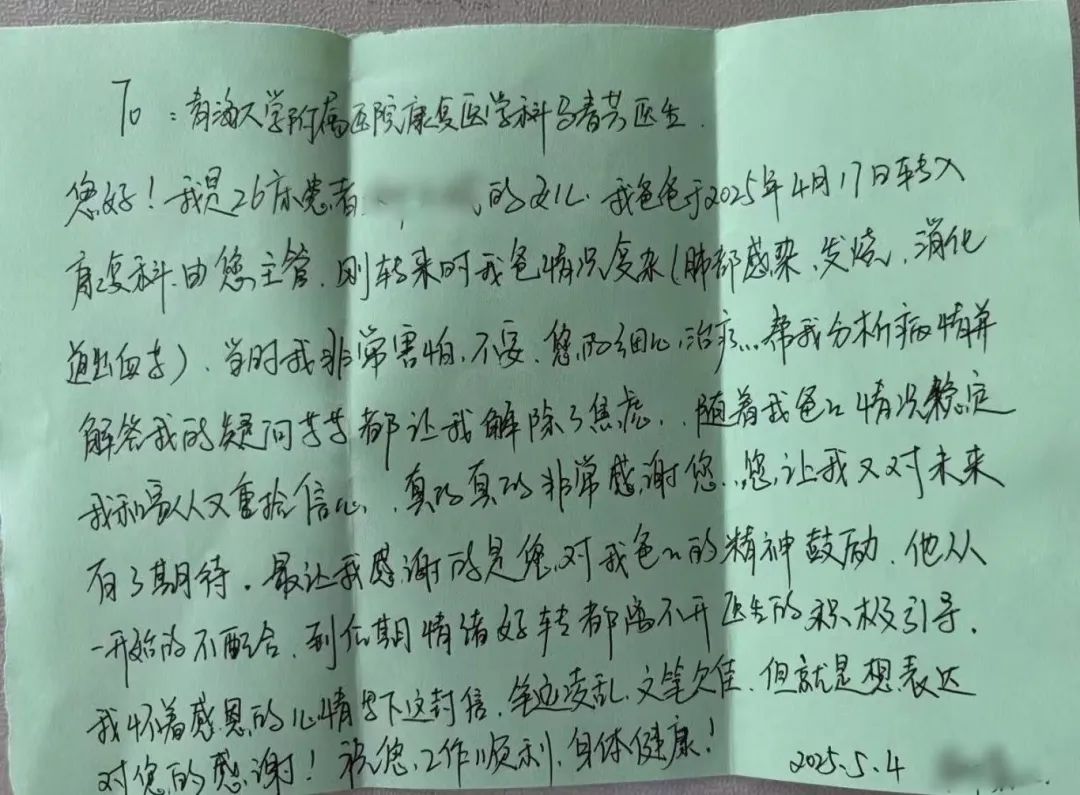 To：青海大学附属医院康复医学科马春芳医生.
您好！我是26床患者 的女儿. 我爸爸于2025年4月17日转入
康复科.由您主管. 刚转来时我爸情况复杂(肺部感染、发烧、消化
道出血等)、当时我非常害怕、不安、您的细心治疗、帮我分析病情并
解答我的疑问等等都让我解除了焦虑、随着我爸爸情况稳定
我和家人又重拾信心、真的真的非常感谢您、您让我又对未来
有了期待。最让我感谢的是您对我爸爸的精神鼓励、他从
一开始的不配合、到后期情绪好转都离不开医生的积极引导.
我怀着感恩的心情写下这封信、笔迹凌乱、文笔欠佳、但就是想表达
对您的感谢！祝您、工作顺利、身体健康！ 2025.5.4